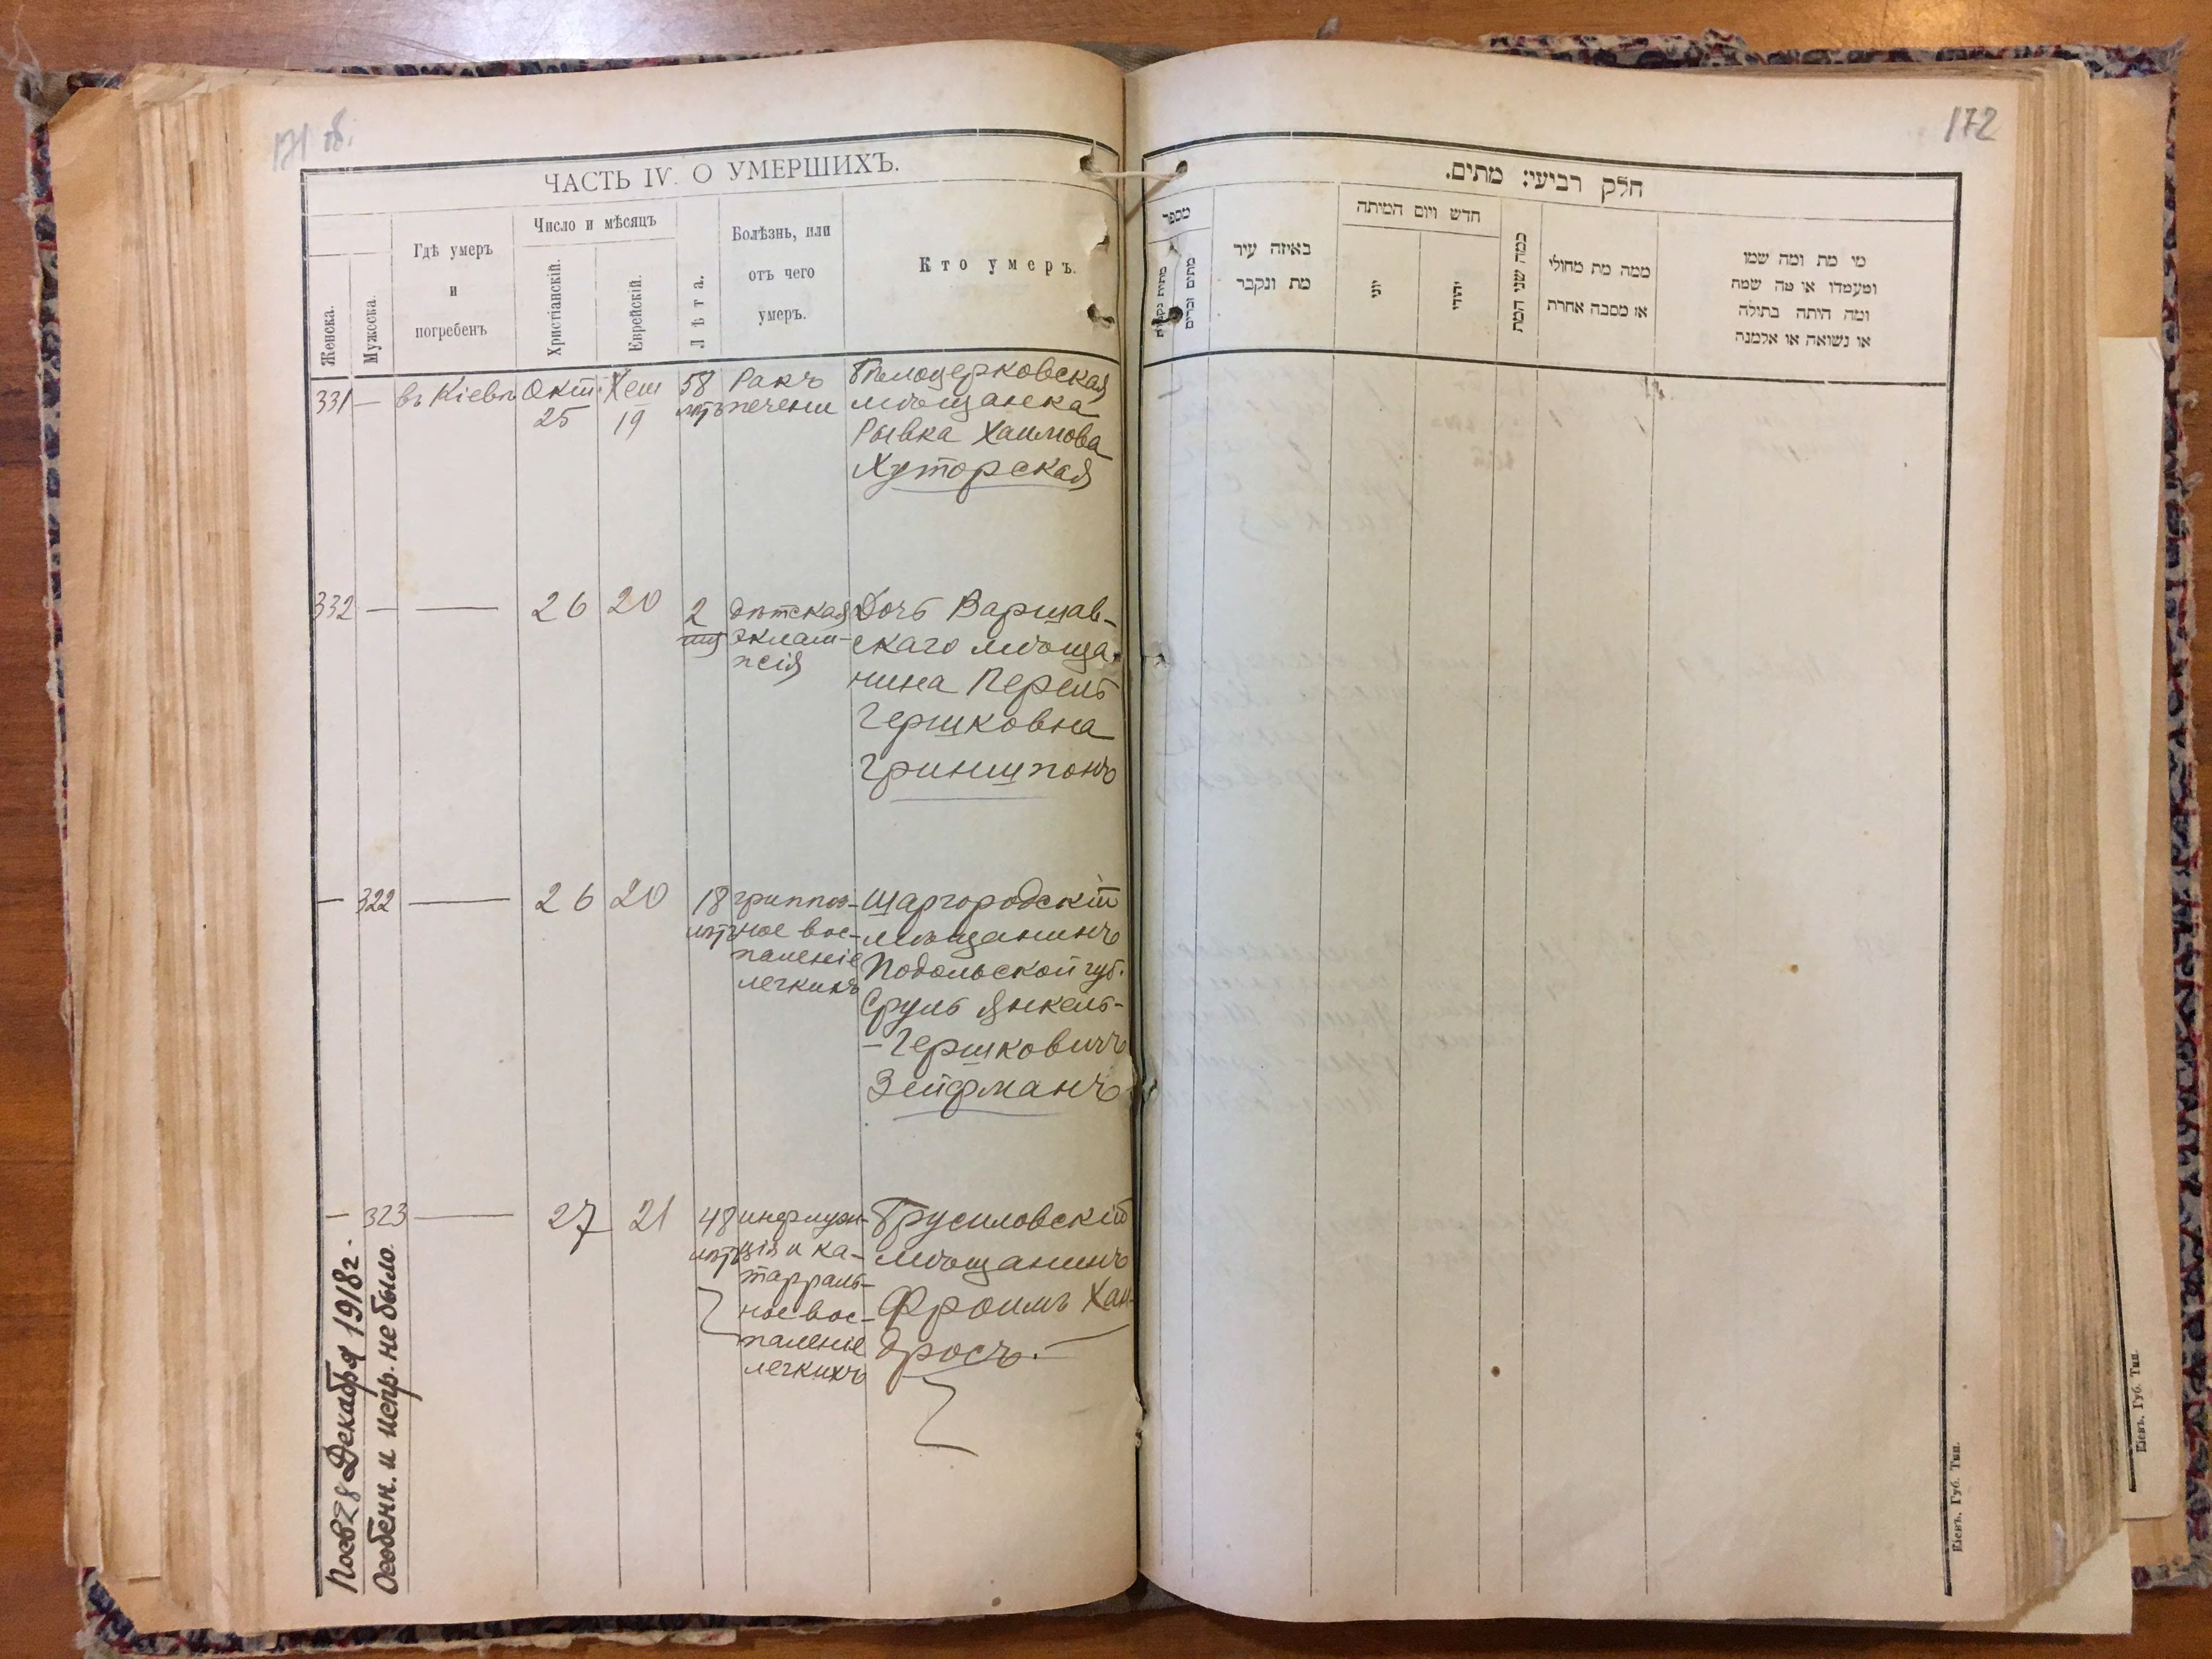 171 об.
ЧАСТЬ IV. О УМЕРШИХЪ.
Женска.
Мужеска.
Гдѣ умеръ
и
погребенъ
Число и мѣсяцъ
Христіанскій.
Еврейскій.
Лѣта.
Болѣзнь, или
отъ чего
умеръ.
Кто умеръ.
331 — въ Кіевѣ Окт. 25 Хеш 19 58 лѣтъ
Ракъ
печени
Бѣлоцерковская
мѣщанка
Рывка Хаимова
Хуторская
332 — — 26 20 2
дѣтская
эклам-
псія
Дочь Варшав-
скаго мѣща-
нина Перель
Гершковна
Гриншпонъ
— 322 — 26 20 18 лѣтъ
гриппоз-
ное вос-
паленіе
легкихъ
Шаргородскій
мѣщанинъ
Подольской губ.
Сруль Янкель-
-Гершковичъ
Зейфманъ
— 323 — 27 21 48 лѣтъ
инфлуэн-
ція и ка-
тарраль-
ное вос-
паленіе
легкихъ
Брусиловскій
мѣщанинъ
Фроимъ Хан-
дросъ.
28 Декабря 1918 г.
Особенн. и испр. не было.
172
חלק רביעי: מתים.
מספר
מתים זכרים
באיזה עיר
מת ונקבר
חדש ויום המיתה
יוני
יהודי
כמה שני המת
ממה מת מחולי
או מסבה אחרת
מי מת ומה שמו
ומעמדו או מה שמה
ומה היתה בתולה
או נשואה או אלמנה
Кіевъ. Губ. Тип.
Кіевъ. Губ. Тип.